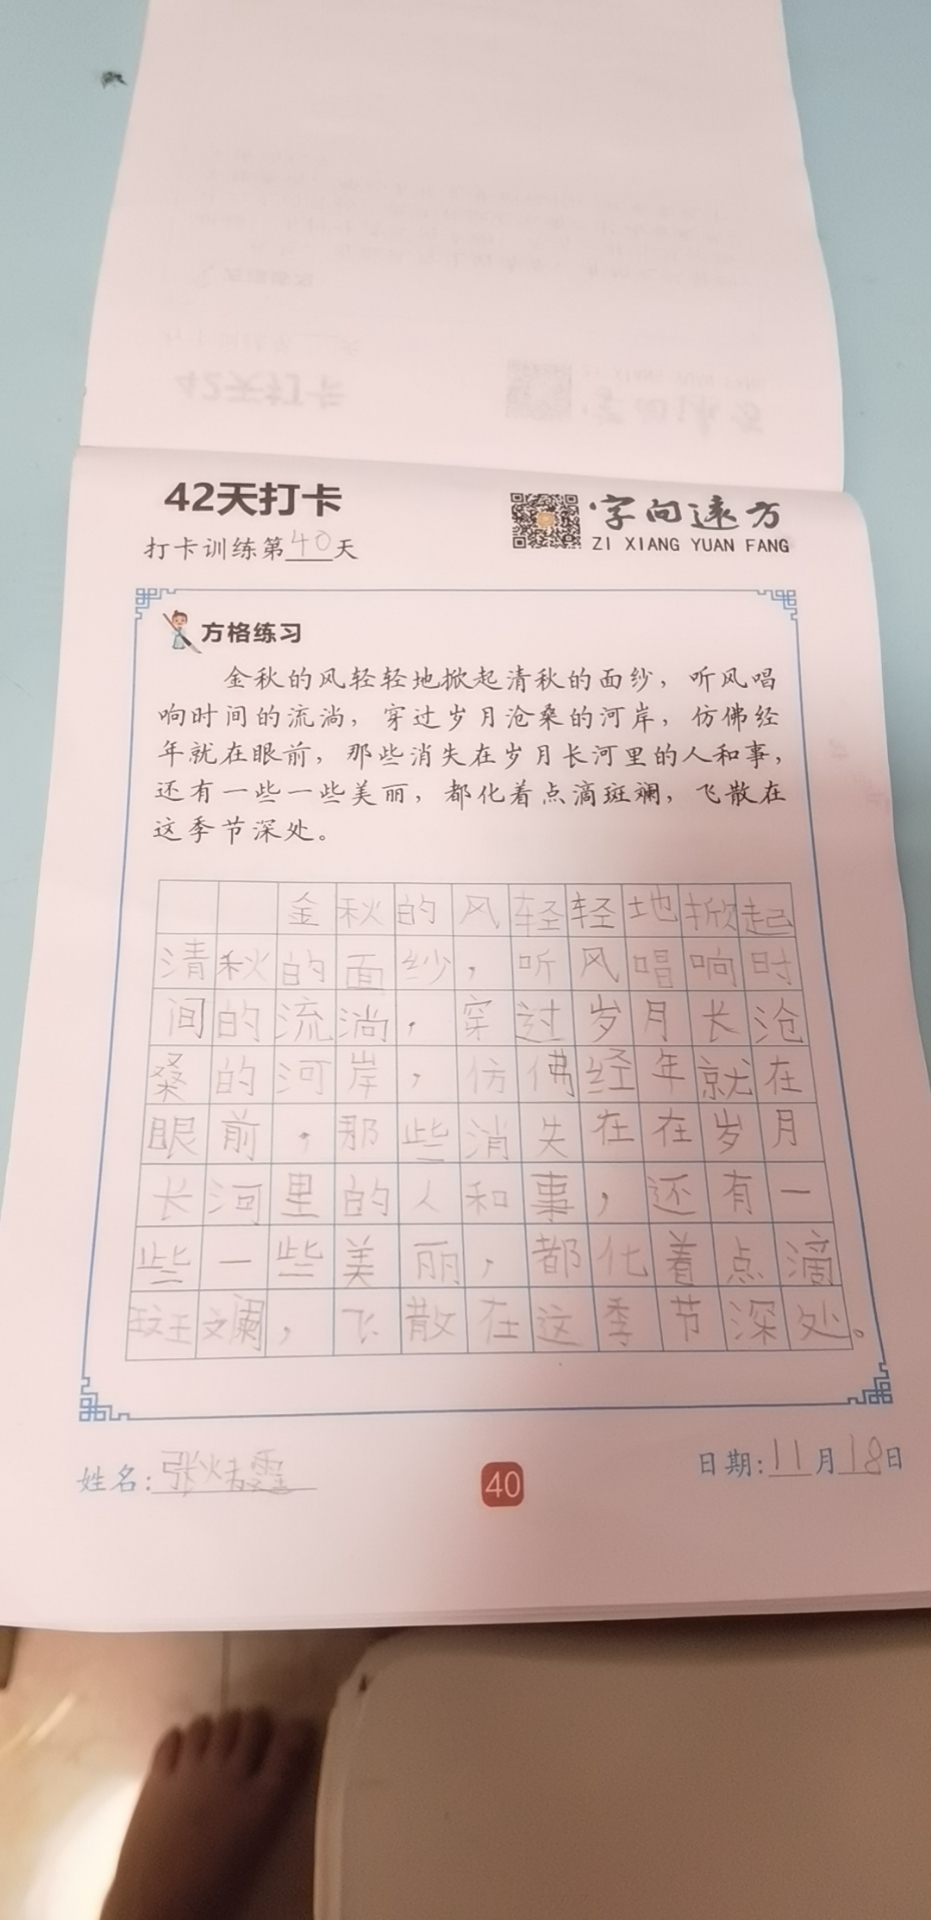 42天打卡
字向远方
ZI XIANG YUAN FANG
打卡训练第40天
方格练习
金秋的风轻轻地掀起清秋的面纱，听风唱
响时间的流淌，穿过岁月沧桑的河岸，仿佛经
年就在眼前，那些消失在岁月长河里的人和事，
还有一些一些美丽，都化着点滴斑斓，飞散在
这季节深处。
金秋的风轻轻地掀起
清秋的面纱，听风唱响时
间的流淌，穿过岁月长沧
桑的河岸，仿佛经年就在
眼前，那些消失在在岁月
长河里的人和事，还有一
些一些美丽，都化着点滴
斑斓，飞散在这季节深处。
姓名:张
40
日期:11月18日